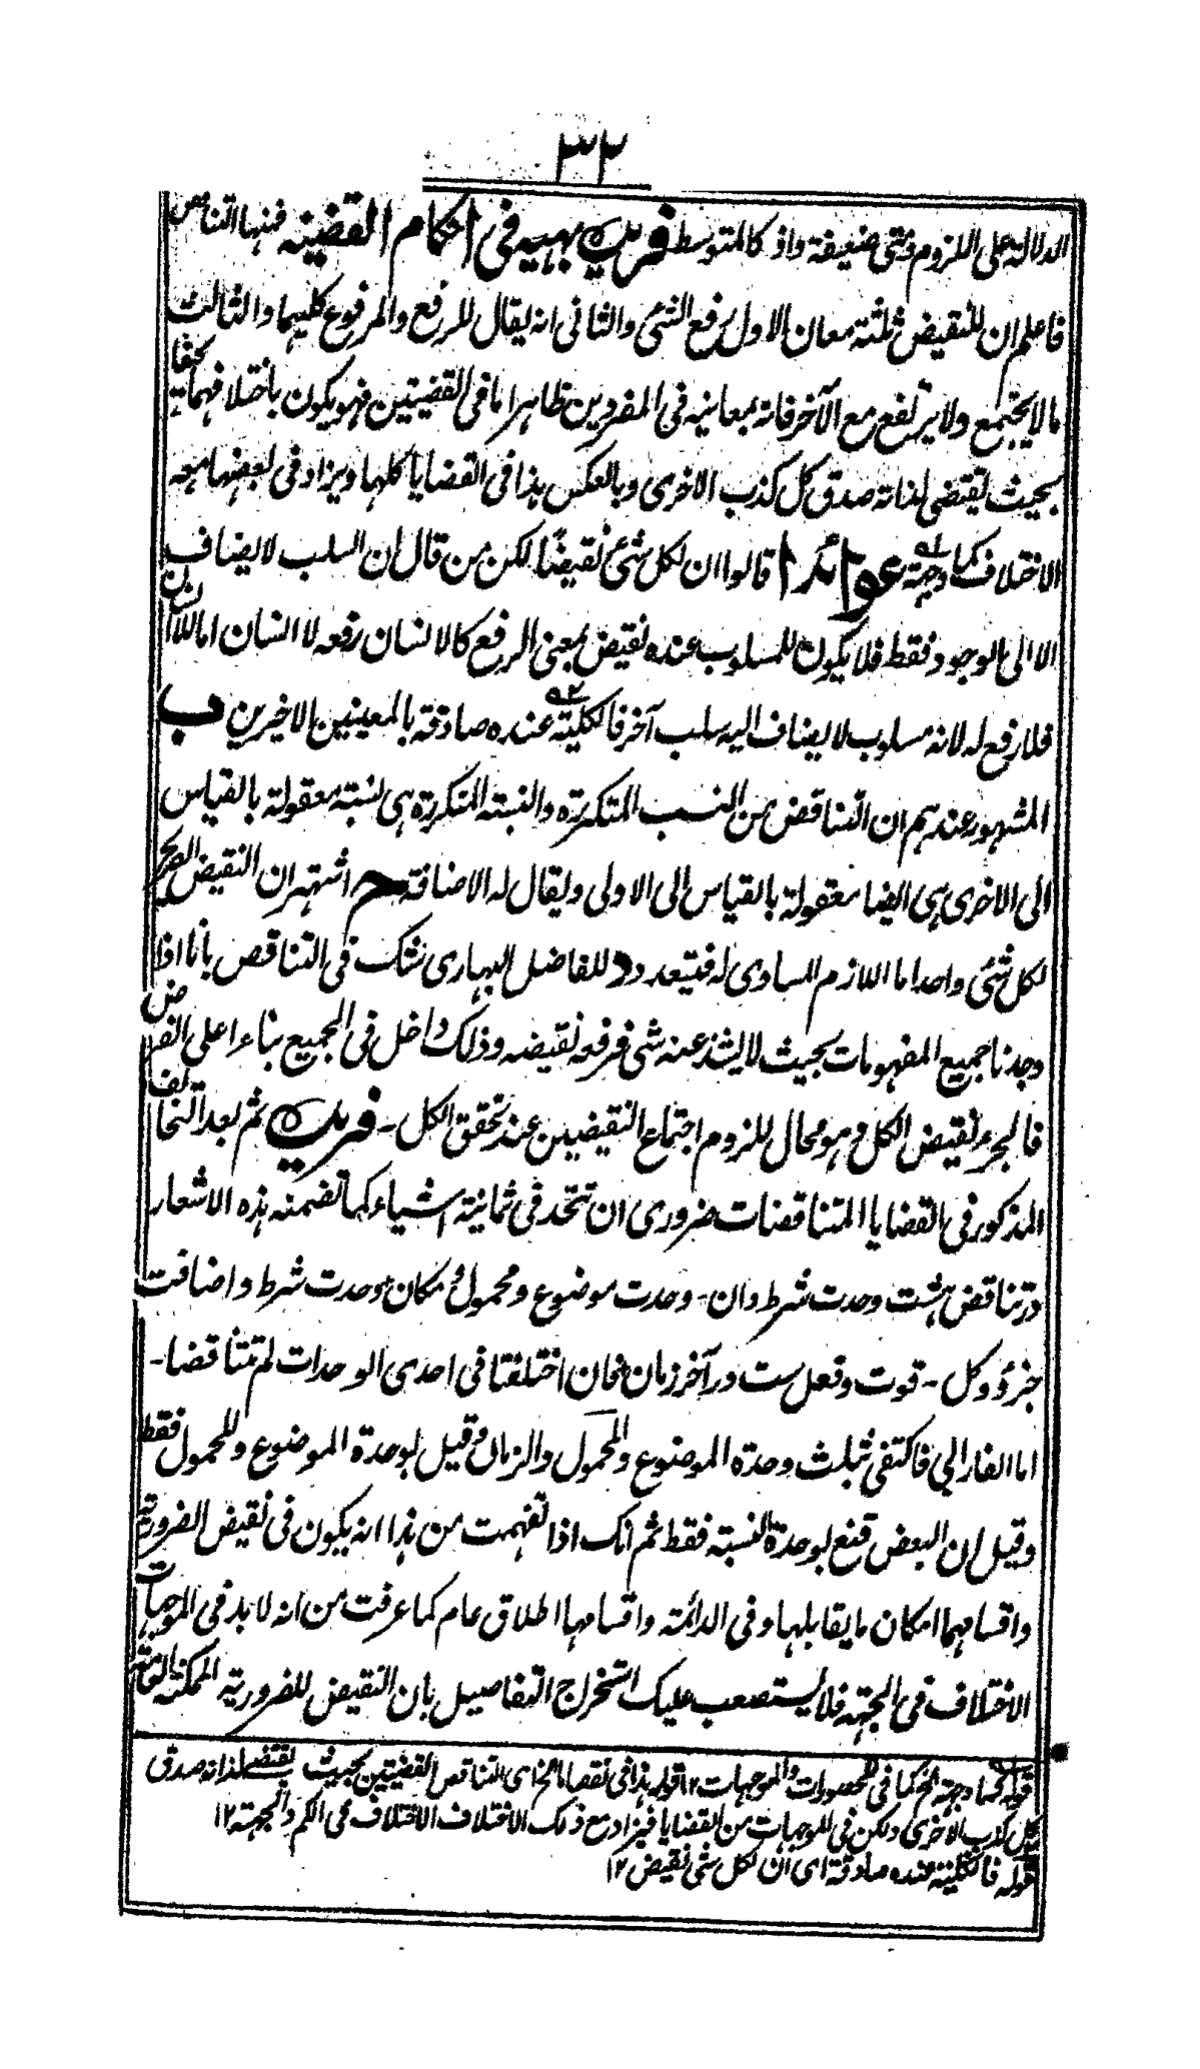 ٣٢
الدلالة على اللزوم ومتى ضعيفة واذ كالمتوسط فريدة بهية فى احكام القضية فمنها التناقض
فاعلم ان للنقيض ثلثة معان الاول رفع الشئ والثانى انه يقال للرفع والمرفوع كليهما والثالث
ما لا يجتمع ولا يرتفع مع الآخر فانه بمعانيه فى المفردين ظاهر اما فى القضيتين فهو يكون باختلافهما كيفا
بحيث يقتضى لذاته صدق كل كذب الاخرى وبالعكس هذا فى القضايا كلها ويزاد فى بعضها معه
الاختلاف كما وجهة عوائد ا قالوا ان لكل شئ نقيضا لكن من قال ان السلب لا يضاف
الا الى الوجود فقط فلا يكون للمسلوب عنده نقيض بمعنى الرفع كالانسان رفعه لا انسان اما اللاانسان
فلا رفع له لانه مسلوب لا يضاف اليه سلب آخر فالكلية عنده صادقة بالمعينين الاخيرين ب
المشهور عندهم ان التناقض من النسب المتكررة والنسبة المتكررة هى نسبة معقولة بالقياس
الى الاخرى هى ايضا معقولة بالقياس الى الاولى ويقال له الاضافة ج اشتهر ان النقيض الصريح
لكل شئ واحد اما اللازم المساوى له فيتعدد د للفاضل البهارى شك فى التناقص بانا اذا
وجدنا جميع المفهومات بحيث لا يشذ عنه شئ فرفعه نقيضه وذلك داخل فى الجميع بناء على الفرض
فالجزء نقيض الكل وهو محال للزوم اجتماع النقيضين عند تحقق الكل ۔ فريدة ثم بعد التخالف
المذكور فى القضايا المتناقضات ضرورى ان تتحد فى ثمانية اشياء كما تضمنه هذه الاشعار
درتناقض ہشت وحدت شرط دان ۔ وحدت موضوع ومحمول و مکان وحدت شرط و اضافت
جزؤ وکل ۔ قوت وفعل ست در آخر زمان فان اختلفتا فى احدى الوحدات لم تتناقضا ۔
اما الفارابي فاكتفى بثلث وحدة الموضوع والمحمول والزمان وقيل بوحدة الموضوع والمحمول فقط
وقيل ان البعض قنع بوحدة النسبة فقط ثم انك اذا تفهمت من هذا انه يكون فى نقيض الضرورية
واقسامهما امكان ما يقابلها وفى الدائمة واقسامها اطلاق عام كما عرفت من انه لا بد فى الموجهات
الاختلاف فى الجهة فلا يستصعب عليك استخراج التفاصيل بان النقيض للضرورية الممكنة العامة
قوله كما وجهة الخ كما فى المحصورات والموجهات ١٢ قوله هذا فى القضايا الخ اى التناقض القضيتين بحيث يقتضى لذاته صدق
كل كذب الاخرى ولكن فى الموجهات من القضايا فيزاد مع ذلك الاختلاف الاختلاف فى الكم والجهة ١٢
قوله فالكلية عنده صادقة اى ان لكل شئ نقيض ١٢